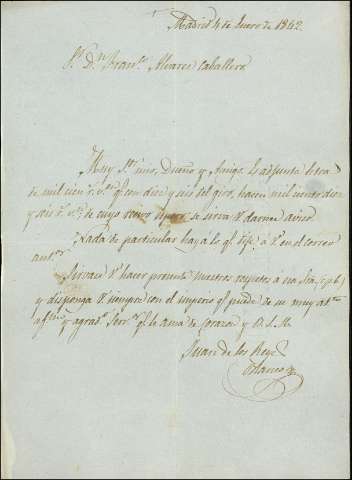 Madrid 4 de Enero de 1862.
Sr. Dn. Franco. Alvarez Caballero
Muy Sr. mio, Dueño y Amigo. Es adjunta letra
de mil cien r.s v.n q.e con diez y seis del giro, hacen mil ciento diez
y seis r.s v.n; de cuyo recivo espero se sirva V. darme aviso
Nada de particular hay a lo q.e dije á V. en el correo
ant.or
Sirvase V. hacer presente nuestros respetos á esa Sra. (c.p.b.)
y disponga V. siempre con el imperio q.e puede de su muy at.to
af.mo y agrad.o Serv.or q.e le ama de corazon y B. S. M.
Juan de los Reyes